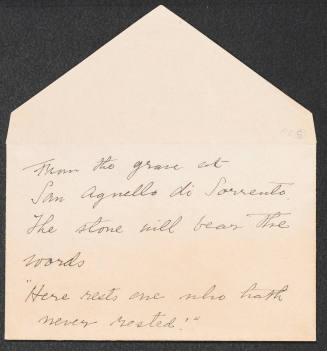 From the grave at
San Agnello di Sorrento
The stone will bear the
words
"Here rests one who hath
never rested."